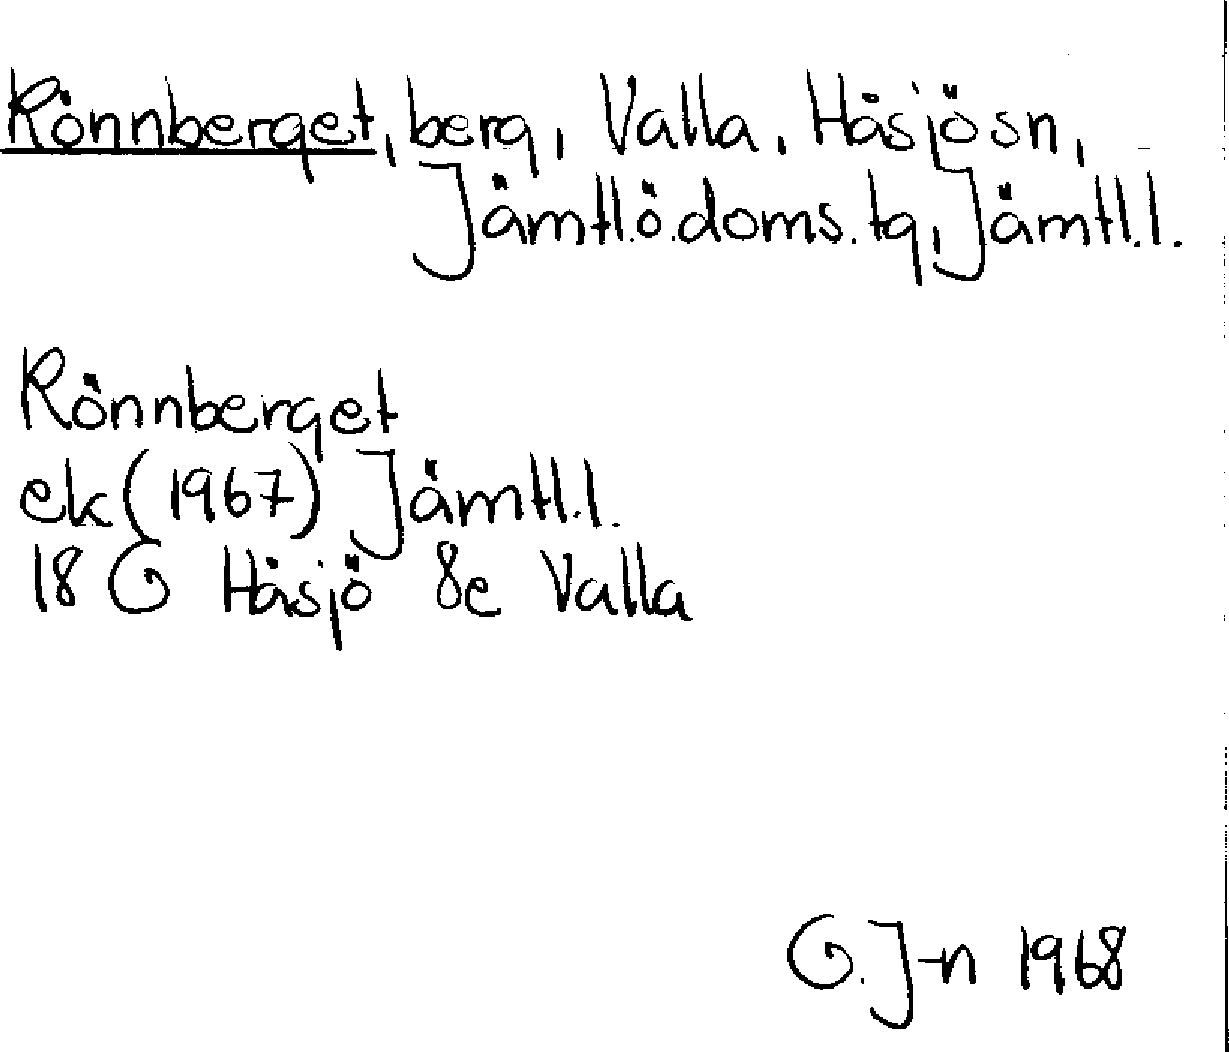 Rönnberget, berg, Valla, Håsjö sn,
Jämtl.ö.doms.tg, Jämtl.l.
Rönnberget
ek (1967) Jämtl.l.
18 G Håsjö 8e Valla
G. J-n 1968